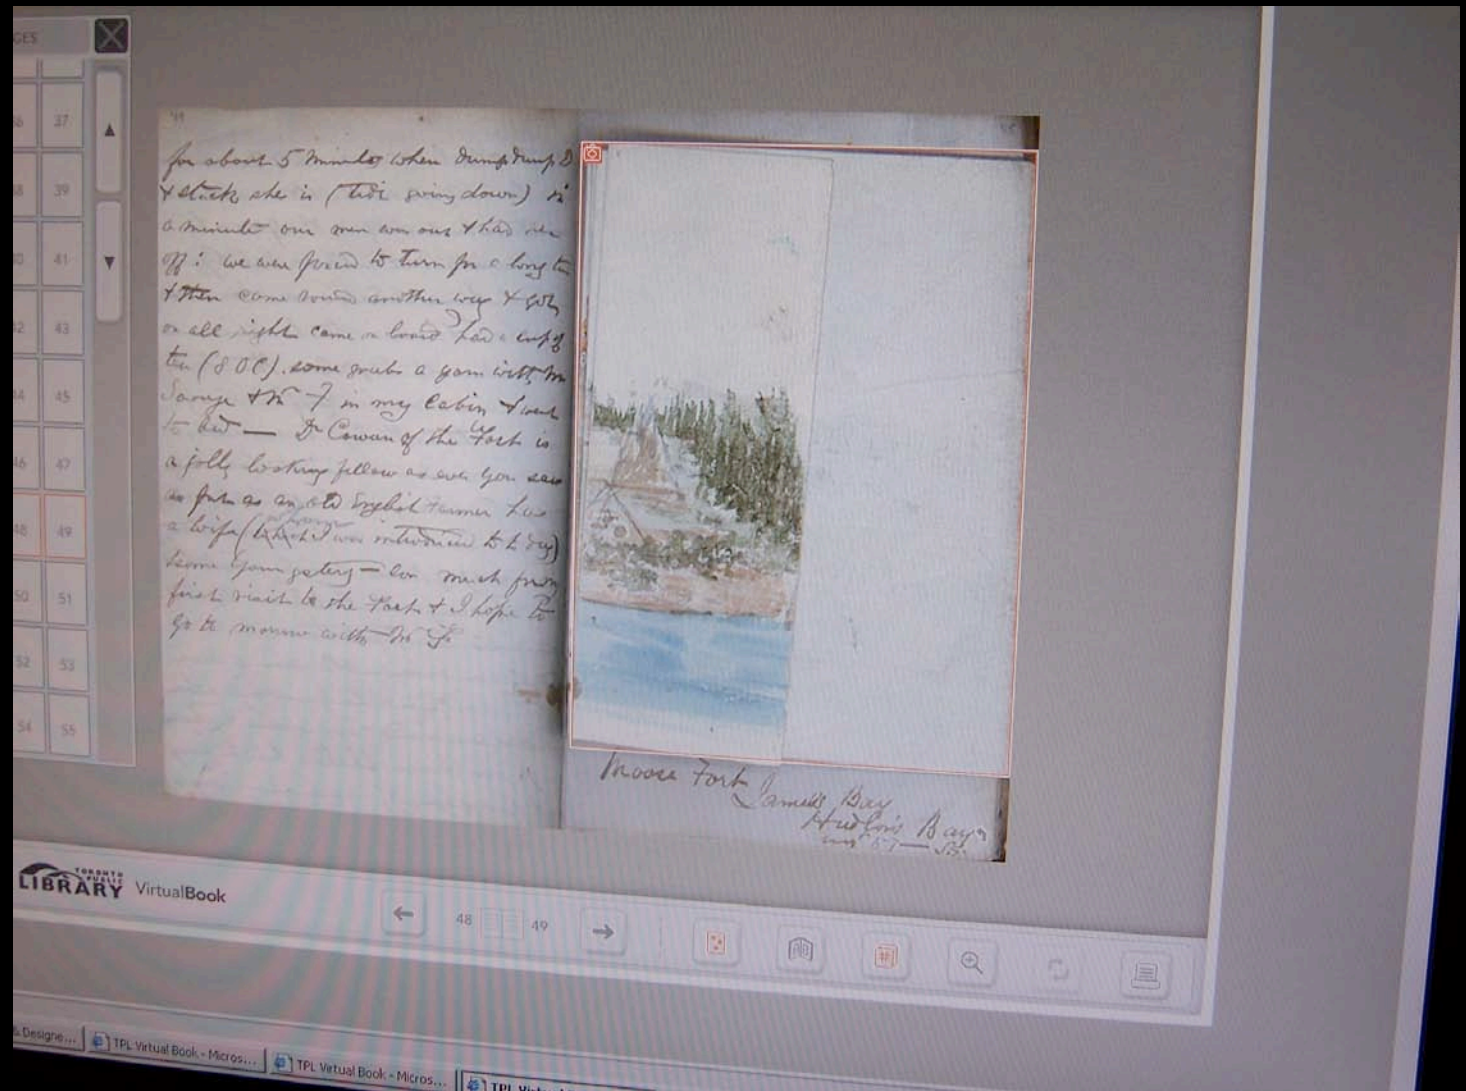 GES
37
39
41
43
45
46
47
48
49
50
51
52
53
54
55
for about 5 minutes when dump dump D
& stuck she is (tide going down) in
a minute our men were out & had her
off: we were forced to turn for a long
& then came round another way & got
on all right came on board had a cup of
tea (8 OC). some grub & a yarn with Mr
in my Cabin & went
to bed — Dr Cowan of the Fort is
a jolly looking fellow as ever you saw
as an old English Farmer has
a wife ( I was introduced to to day)
& some youngsters — much from
first visit to the Fort & I hope to
go to morrow with Mr
Moose Fort
James Bay
Hudson's Bay
TORONTO
PUBLIC
LIBRARY VirtualBook
48 49
& Designe... TPL Virtual Book - Micros... TPL Virtual Book - Micros...